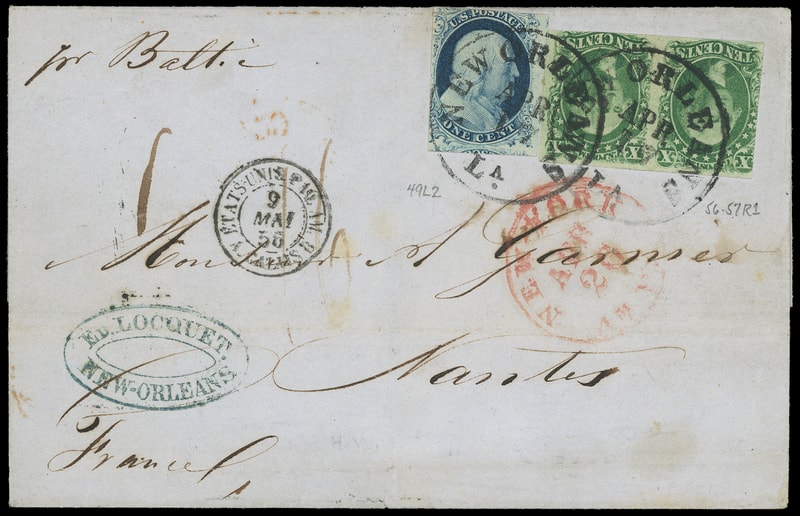 pr Baltic
U.S. POSTAGE
ONE CENT
TEN CENTS
X X
TEN CENTS
X X
NEW ORLEANS
APR
LA.
NEW ORLEANS
APR
LA
49L2
56-57R1
ETATS-UNIS
9
MAI
56
CALAIS
NEW YORK
APR
Monsieur A Garnier
ED. LOCQUET.
NEW-ORLEANS
Nantes
France
H.M.